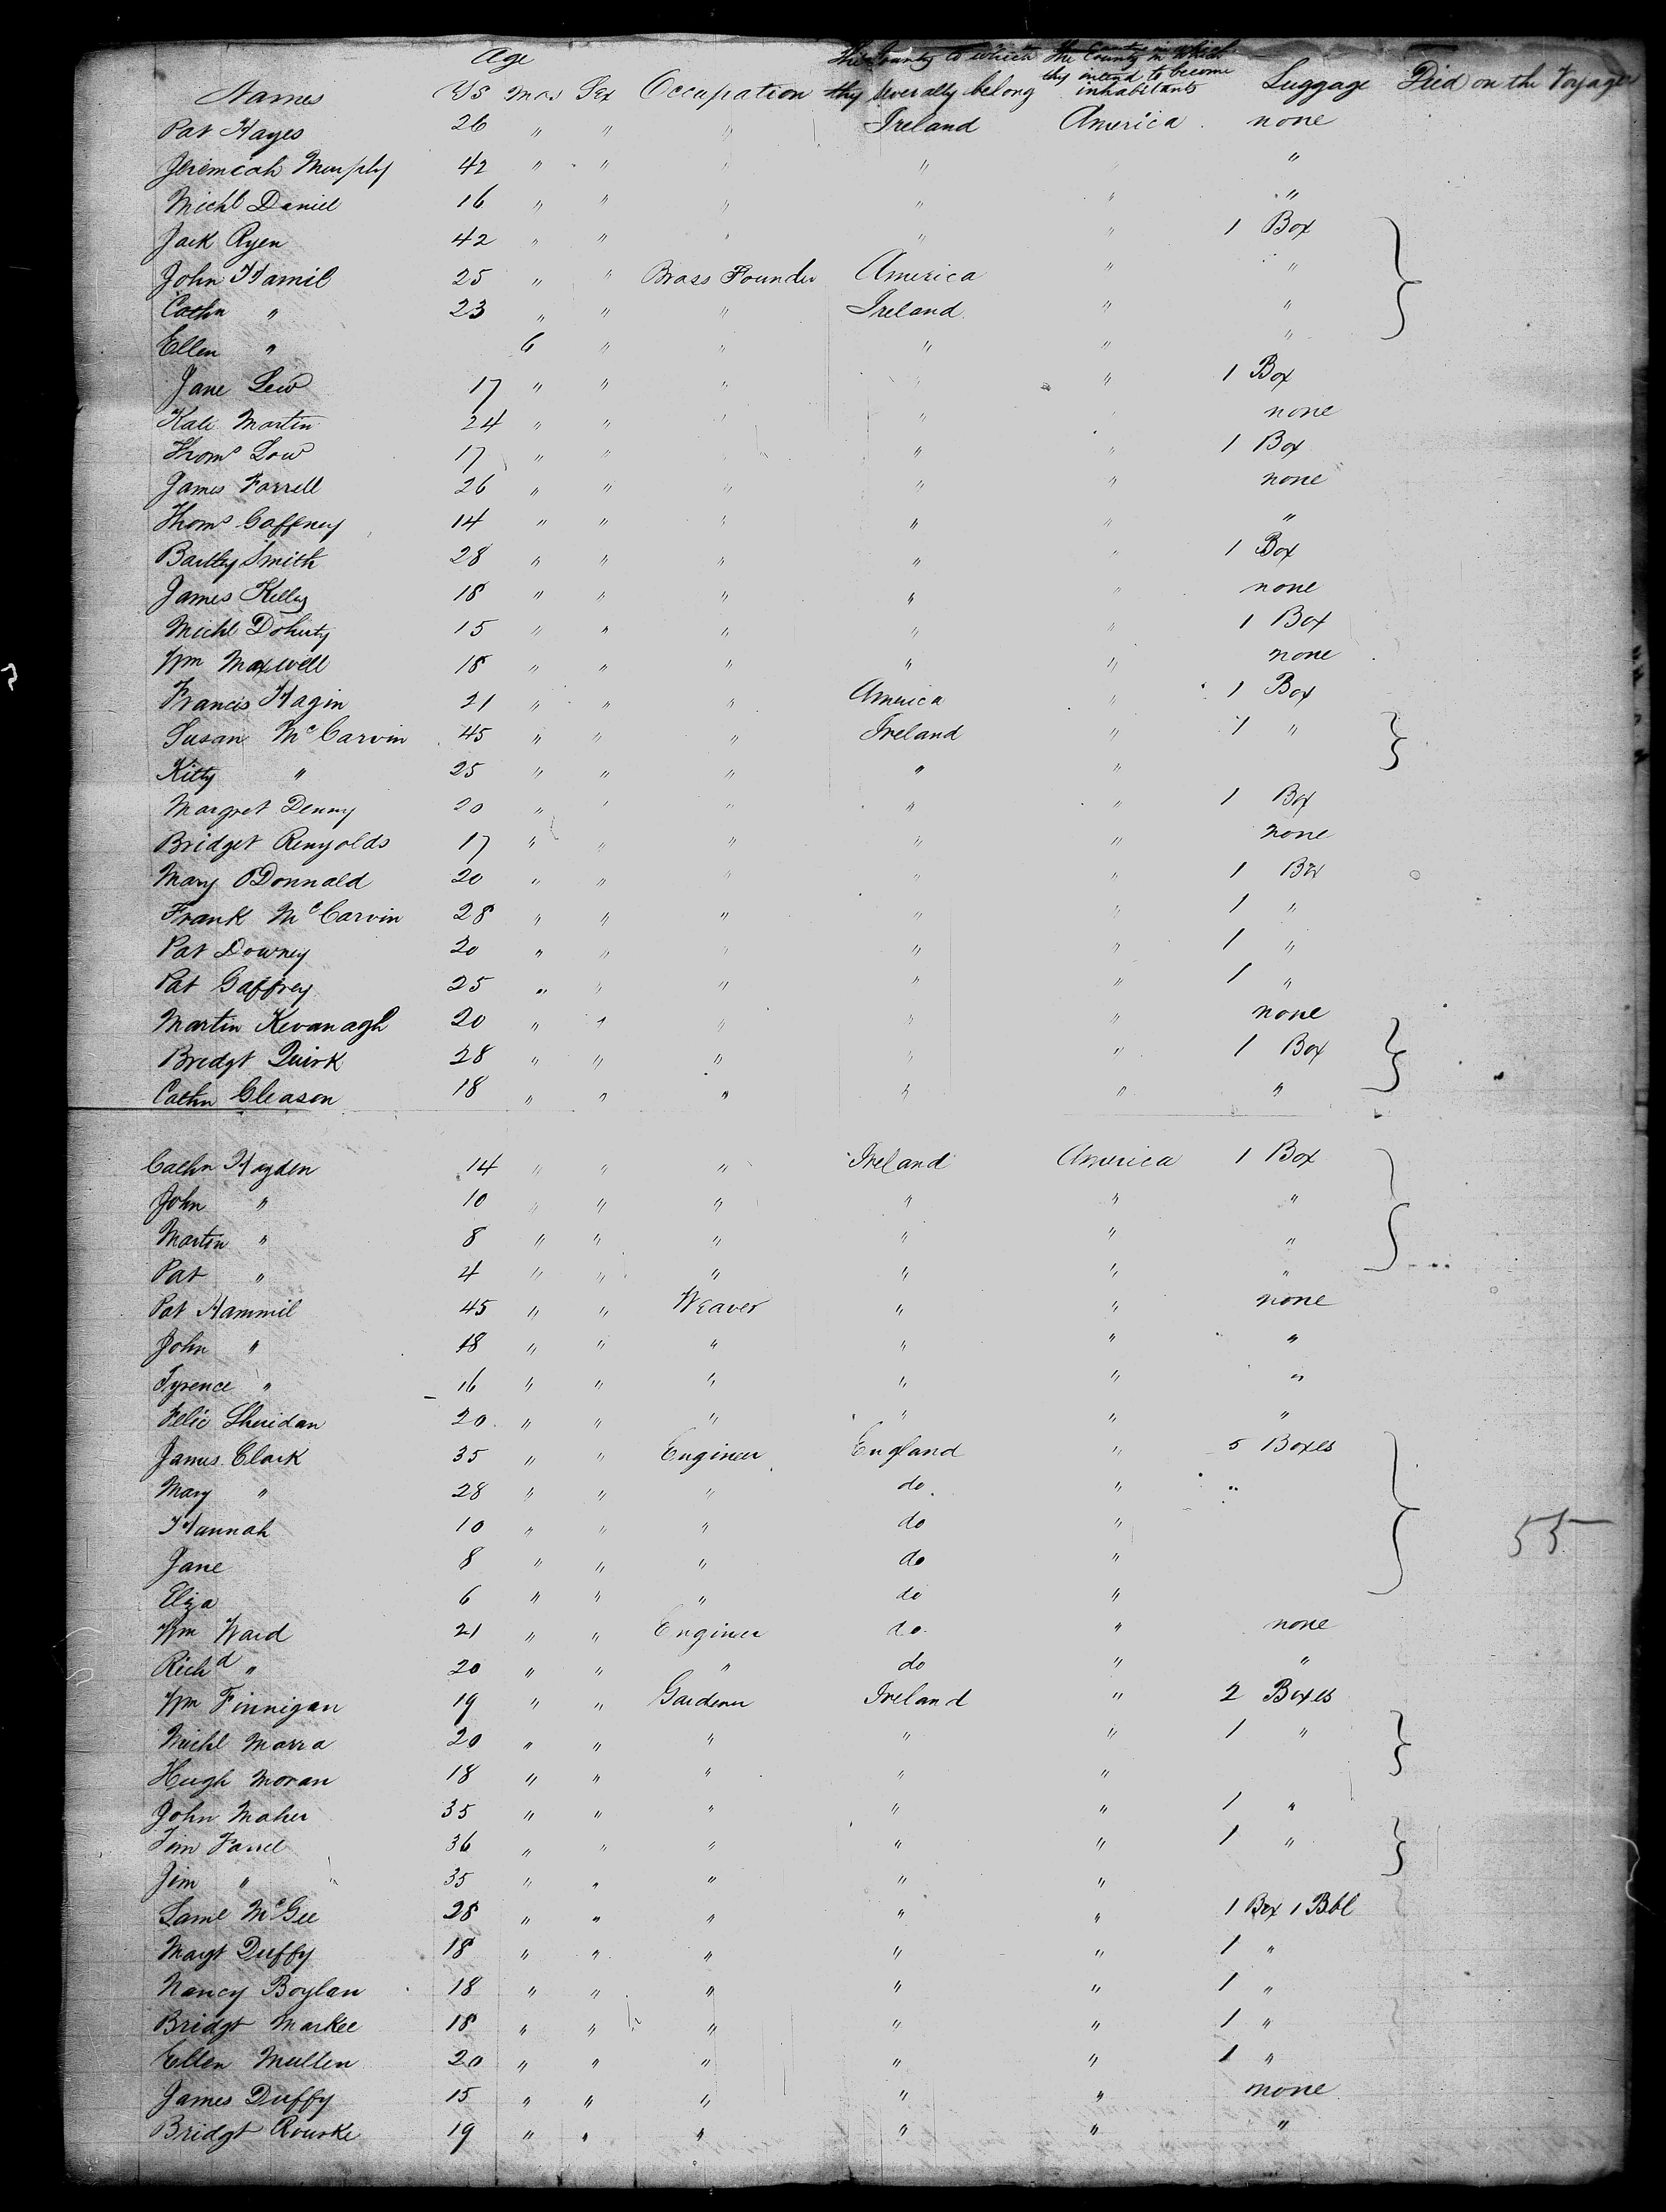 Age
Names Ys Mos Sex Occupation The County to which they severally belong The County in which they intend to become inhabitants Luggage Died on the Voyage
Pat Hayes 26 " " " Ireland America none
Jeremiah Murphy 42 " " " " " "
Michl Daniel 16 " " " " " "
Jack Ryen 42 " " " " " 1 Box
John Hamil 25 " " Brass Founder America " "
Cathn " 23 " " " Ireland " "
Ellen " 6 " " " " "
Jane Lew 17 " " " " " 1 Box
Kate Martin 24 " " " " " none
Thoms Low 17 " " " " " 1 Box
James Farrell 26 " " " " " none
Thoms Gaffeney 14 " " " " " "
Bartley Smith 28 " " " " " 1 Box
James Kelley 18 " " " " " none
Michl Doherty 15 " " " " " 1 Box
Wm Maxwell 18 " " " " " none
Francis Hagin 21 " " " America " 1 Box
Susan McCarvin 45 " " " Ireland " 1 "
Kitty " 25 " " " " "
Margret Denny 20 " " " " " 1 Box
Bridget Renyolds 17 " " " " " none
Mary ODonnald 20 " " " " " 1 Box
Frank McCarvin 28 " " " " " 1 "
Pat Downey 20 " " " " " 1 "
Pat Gaffrey 25 " " " " " 1 "
Martin Kevanagh 20 " " " " " none
Bredgt Quirk 28 " " " " " 1 Box
Cathn Gleason 18 " " " " " "
Cathn Hayden 14 " " " Ireland America 1 Box
John " 10 " " " " " "
Martin " 8 " " " " " "
Pat " 4 " " " " " "
Pat Hammil 45 " " Weaver " " none
John " 18 " " " " " "
Tyrence " 16 " " " " " "
Felic Sheridan 20 " " " " " "
James Clark 35 " " Engineer England " 5 Boxes
Mary " 28 " " " do " "
Hannah 10 " " " do "
55
Jane 8 " " " do "
Eliza 6 " " " do "
Wm Ward 21 " " Engineer do " none
Richd " 20 " " " do " "
Wm Finnigan 19 " " Gardener Ireland " 2 Boxes
Michl Marra 20 " " " " " 1 "
Hugh Moran 18 " " " " "
John Maher 35 " " " " " 1 "
Tim Farrel 36 " " " " " 1 "
Jim " 35 " " " " "
Saml McGee 28 " " " " " 1 Box 1 Bbl
Magt Duffy 18 " " " " " 1 "
Nancy Boylan 18 " " " " " 1 "
Bridgt Markee 18 " " " " " 1 "
Ellen Mullen 20 " " " " " 1 "
James Duffy 15 " " " " " none
Bridgt Rourke 19 " " " " " "